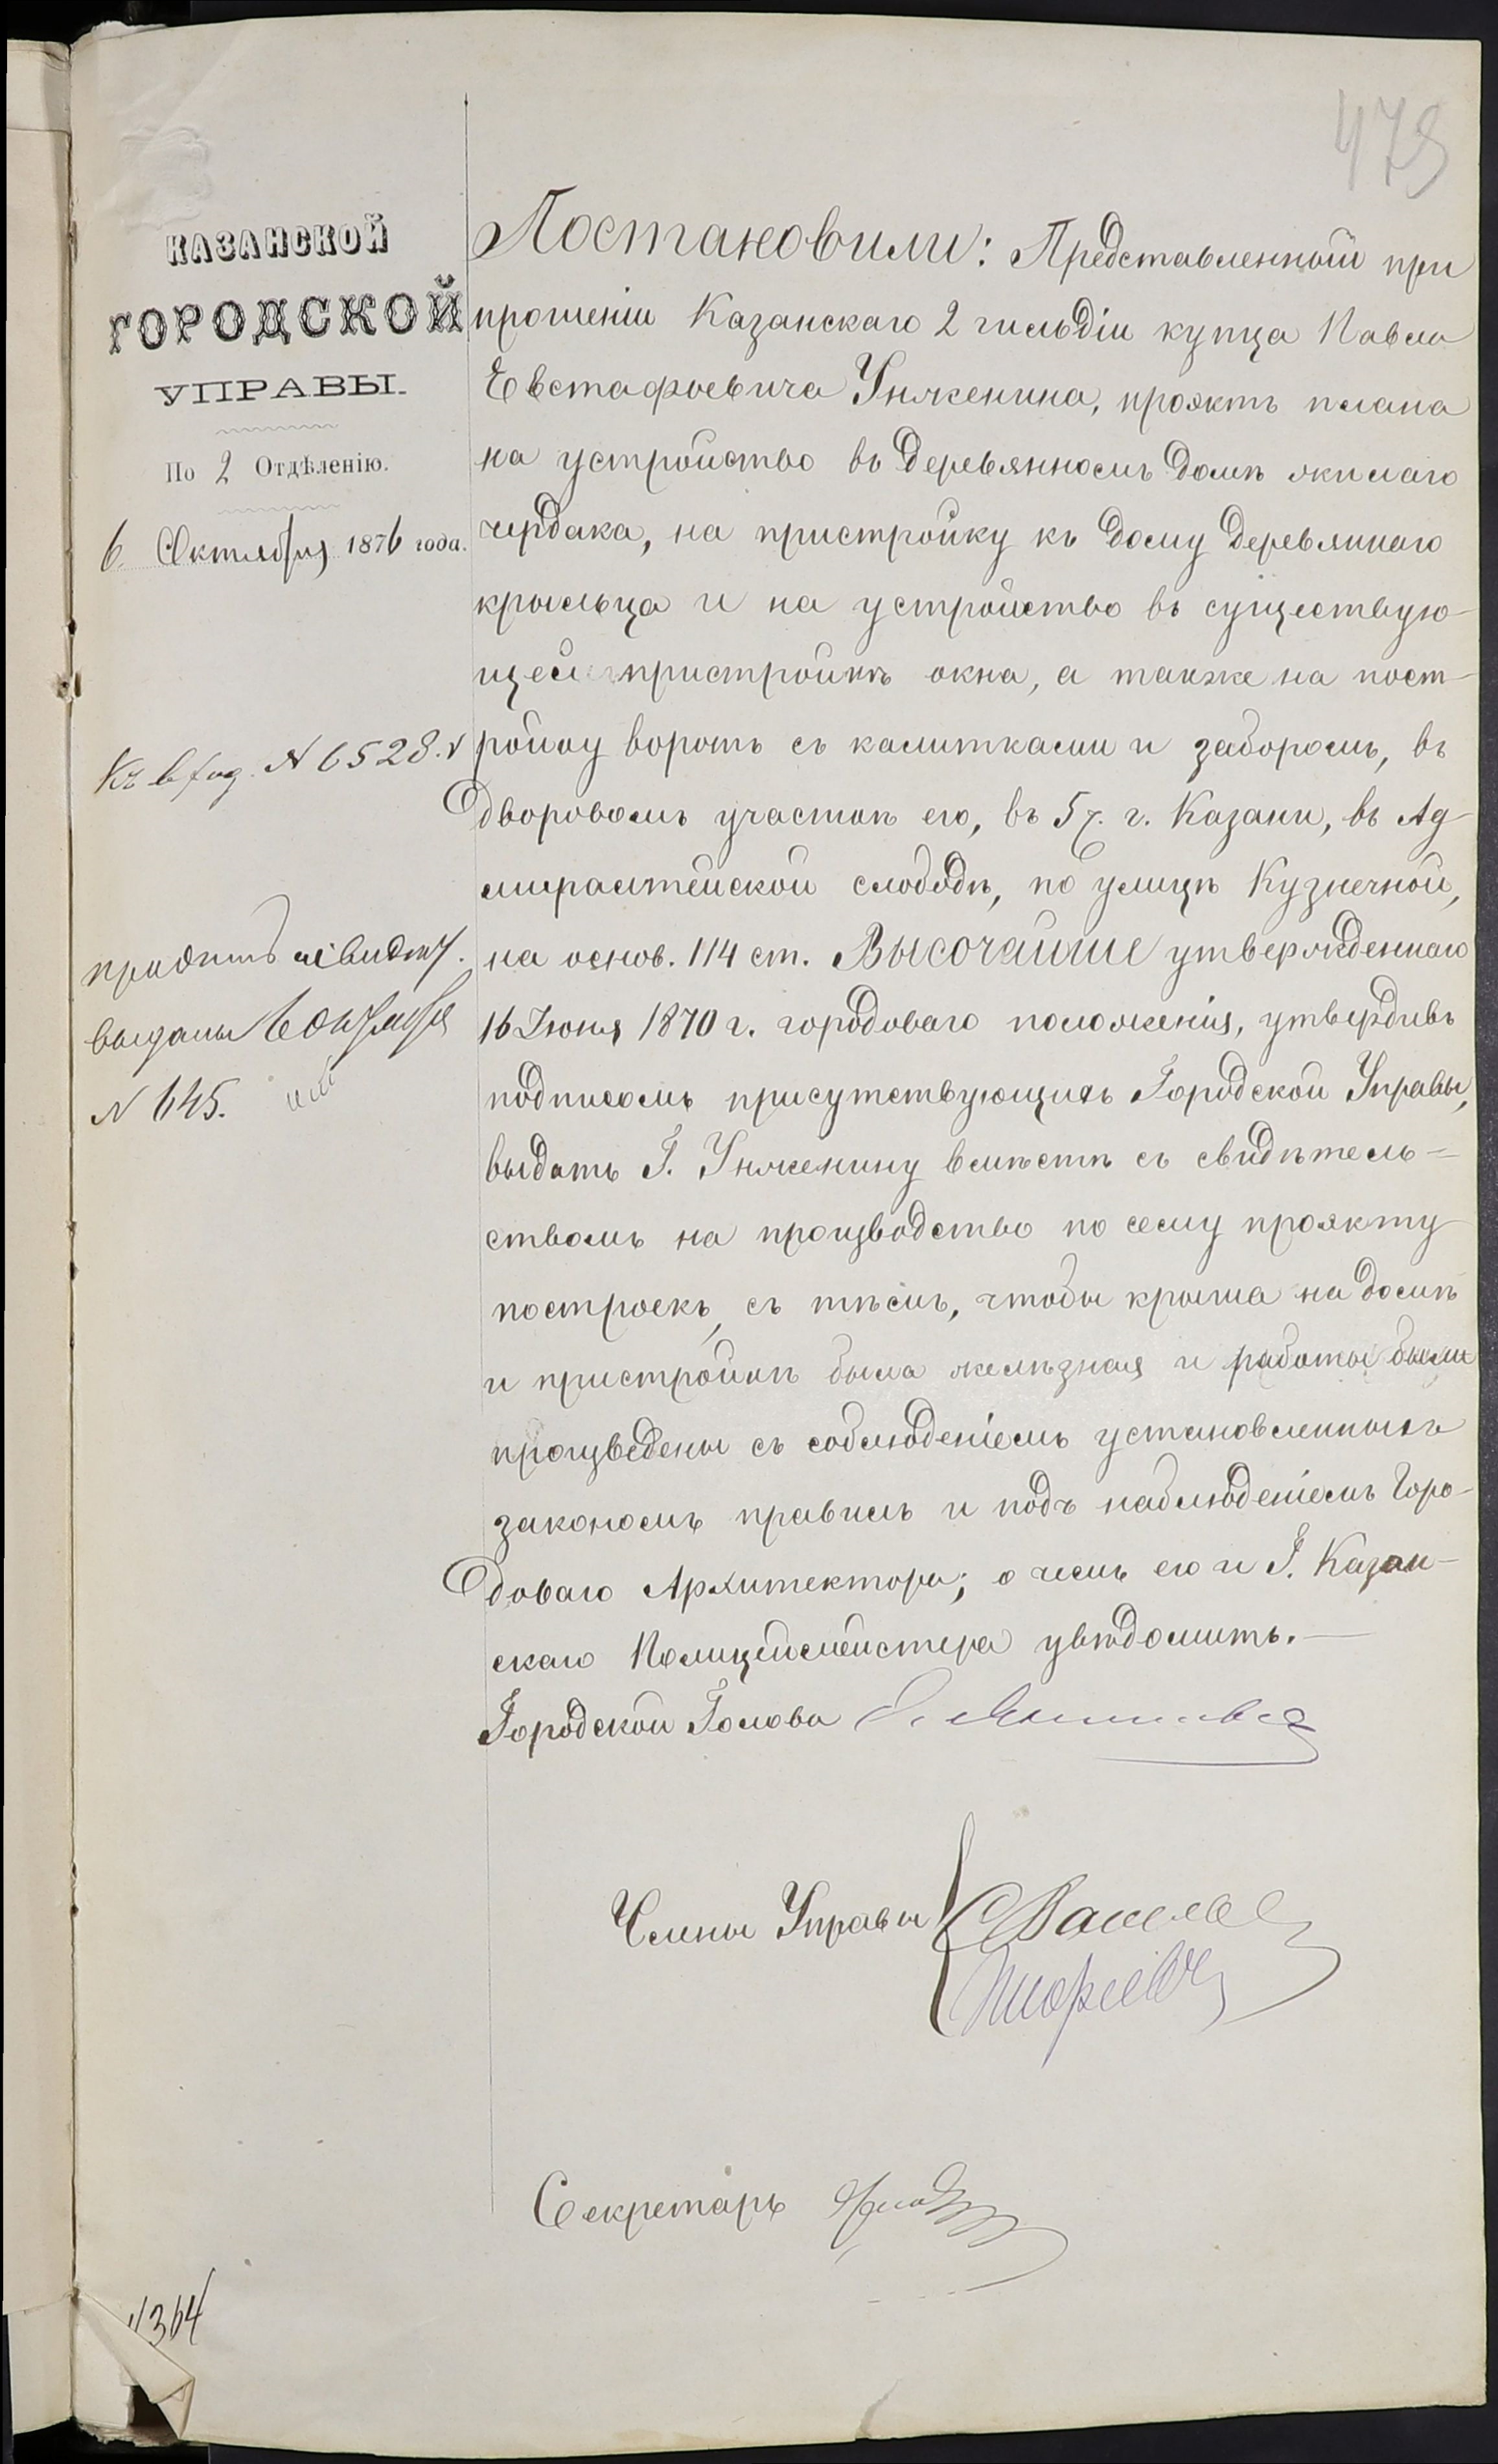 479
КАЗАНСКОЙ
ГОРОДСКОЙ
УПРАВЫ.
По 2 Отдѣленію.
6 Октября 1876 года.
Къ вход. № 6528.
выданы 6 Октября
№ 645.
Постановили: Представленный при
прошеніи Казанскаго 2 гильдіи купца Павла
Евстафьевича Унженина, проэктъ плана
на устройство въ деревянномъ домѣ жилаго
чердака, на пристройку къ дому деревяннаго
крыльца и на устройство въ существую-
щей пристройкѣ окна, а также на пост-
ройку воротъ съ калитками и заборомъ, въ
дворовомъ участкѣ его, въ 5 ч. г. Казани, въ Ад-
миралтейской слободѣ, по улицѣ Кузнечной,
на основ. 114 ст. Высочайше утвержденнаго
16 Іюня 1870 г. городоваго положенія, утвердивъ
подписомъ присутствующихъ Городской Управы,
выдать Г. Унженину вмѣстѣ съ свидѣтель-
ствомъ на производство по сему проэкту
построекъ, съ тѣмъ, чтобы крыша на домѣ
и пристройкѣ была желѣзная и работы были
произведены съ соблюденіемъ установленныхъ
закономъ правилъ и подъ наблюденіемъ Горо-
доваго Архитектора; о чемъ его и Г. Казан-
скаго Полицеймейстера увѣдомить.—
Городской Голова
Члены Управы
Секретарь
4364